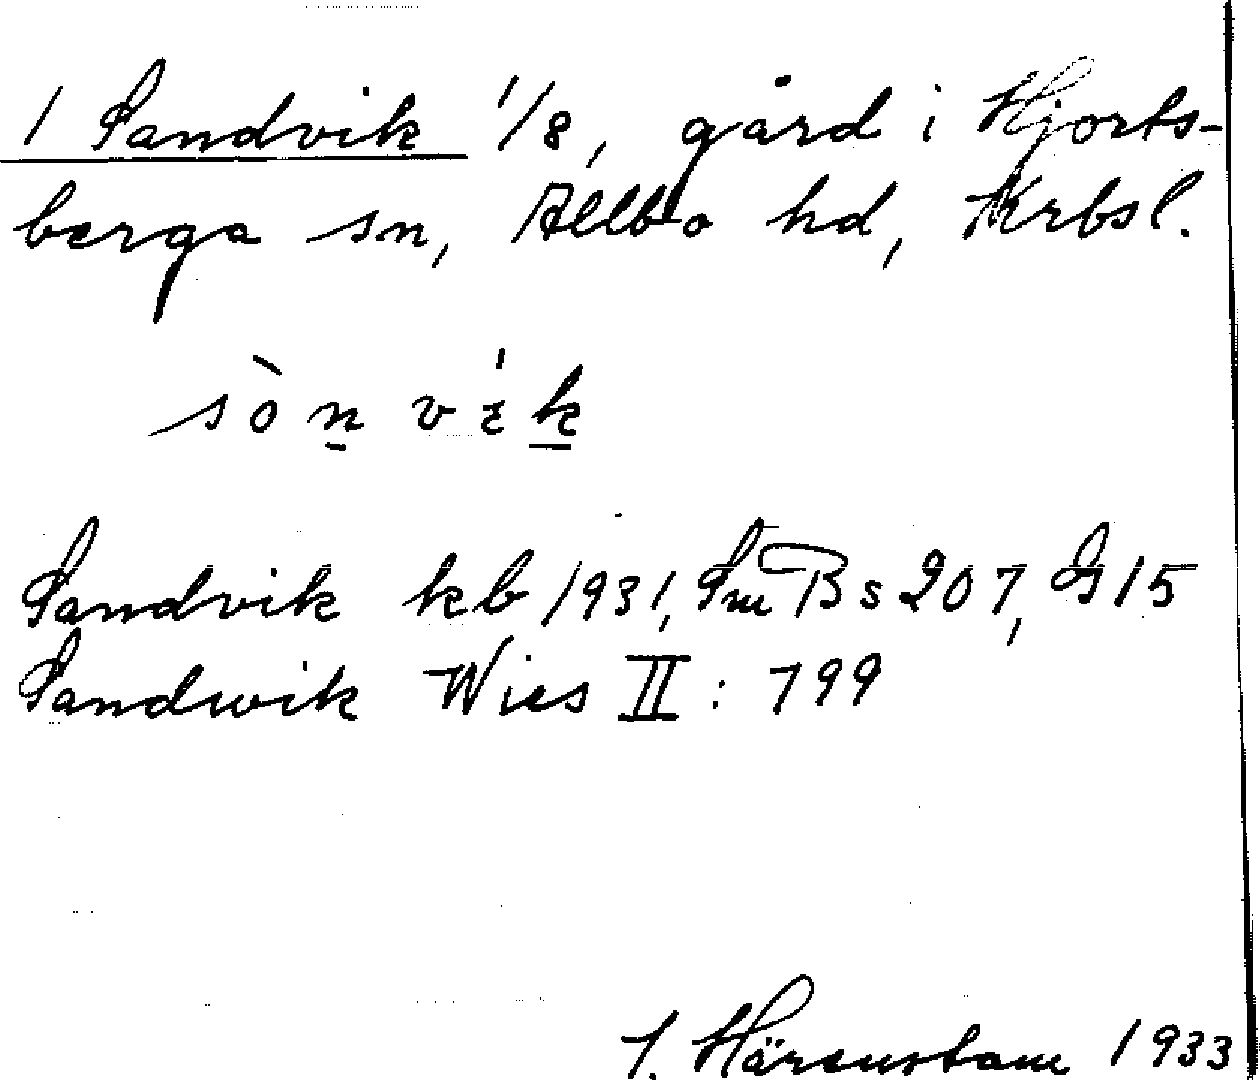 1 Sandvik 1/8, gård i Hjorts-
berga sn, Allbo hd, Krbsl.
sònvík
Sandvik kb 1931, Sm Bs 207, G15
Sandwik Wies II: 799
J. Härenstam 1933